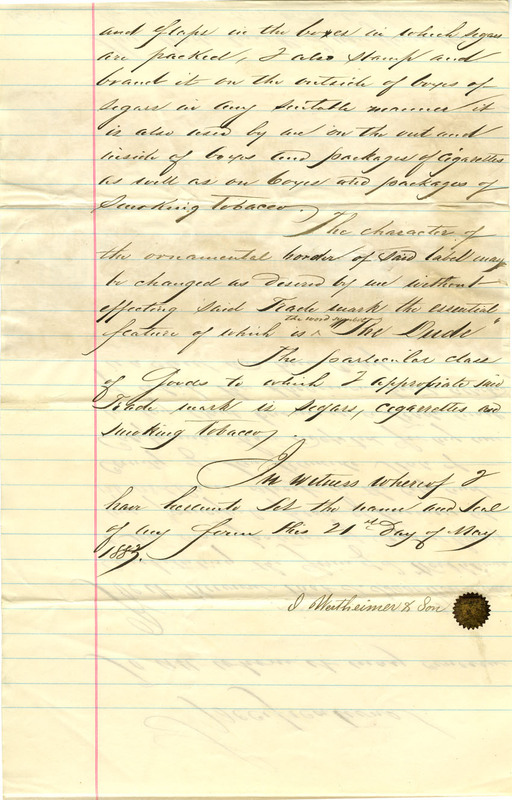 and flaps in the boxes in which segars
are packed, I also stamp and
brand it on the outside of boxes of
segars in any suitable manner it
is also used by me on the out and
inside of boxes and packages of cigarettes
as well as on boxes and packages of
Smoking Tobacco.
The character of
the ornamental border of said label may
be changed as desired by me without
effecting said Trade mark the essential
the word symbol
feature of which is "The Dude"
The particular class
of Goods to which I appropiate said
Trade mark is segars, cigarrettes and
smoking tobacco.
In witness whereof I
have hereunto set the name and seal
of my firm this 21st Day of May
1883.
I Wertheimer & Son